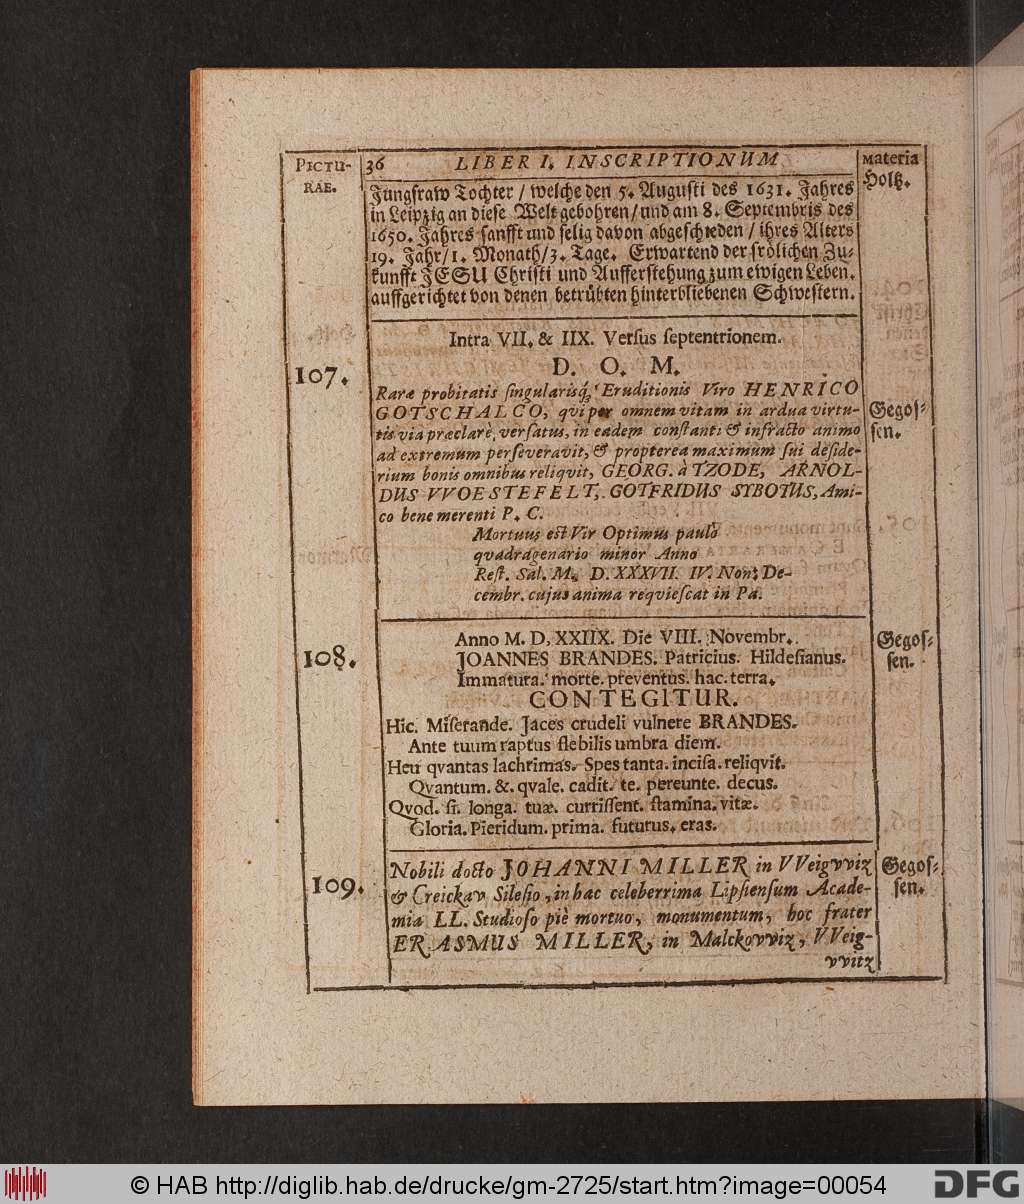 PICTU-
RAE.
36 LIBER I. INSCRIPTIONUM
Materia
Holtz.
Jungfraw Tochter / welche den 5. Augusti des 1631. Jahres
in Leipzig an diese Welt gebohren / und am 8. Septembris des
1650. Jahres sanfft und selig davon abgeschieden / ihres Alters
19. Jahr / 1. Monath / 3. Tage. Erwartend der frölichen Zu-
kunfft JESU Christi und Aufferstehung zum ewigen Leben.
auffgerichtet von denen betrübten hinterbliebenen Schwestern.
Intra VII. & IIX. Versus septentrionem.
107.
D. O. M.
Raræ probitatis singularisq; Eruditionis Viro HENRICO
GOTSCHALCO, qvi per omnem vitam in ardua virtu-
tis via præclarè, versatus, in eadem constanti & infracto animo
ad extremum perseveravit, & propterea maximum sui deside-
rium bonis omnibus reliqvit, GEORG. à TZODE, ARNOL-
DUS VVOESTEFELT, GOTFRIDUS SYBOTUS, Ami-
co bene merenti P. C.
Gegos-
sen.
Mortuus est Vir Optimus paulò
qvadragenario minor Anno
Rest. Sal. M. D. XXXVII. IV. Non: De-
cembr. cujus anima reqviescat in Pa.
108.
Anno M. D, XXIIX. Die VIII. Novembr.
JOANNES BRANDES. Patricius. Hildesianus.
Immatura. morte. preventus. hac. terra.
CONTEGITUR.
Gegos-
sen.
Hic. Miserande. Jaces crudeli vulnere BRANDES.
Ante tuum raptus flebilis umbra diem.
Heu qvantas lachrimas. Spes tanta. incisa. reliqvit.
Qvantum. &. qvale. cadit. te. pereunte. decus.
Qvod. si. longa. tuæ. currissent. stamina. vitæ.
Gloria. Pieridum. prima. futurus. eras.
109.
Nobili docto JOHANNI MILLER in VVeigvviz
& Creickav Silesio, in hac celeberrima Lipsiensum Acade-
mia LL. Studioso piè mortuo, monumentum, hoc frater
ERASMUS MILLER, in Malckovviz, VVeig-
vvitz
Gegos-
sen.
© HAB http://diglib.hab.de/drucke/gm-2725/start.htm?image=00054
DFG